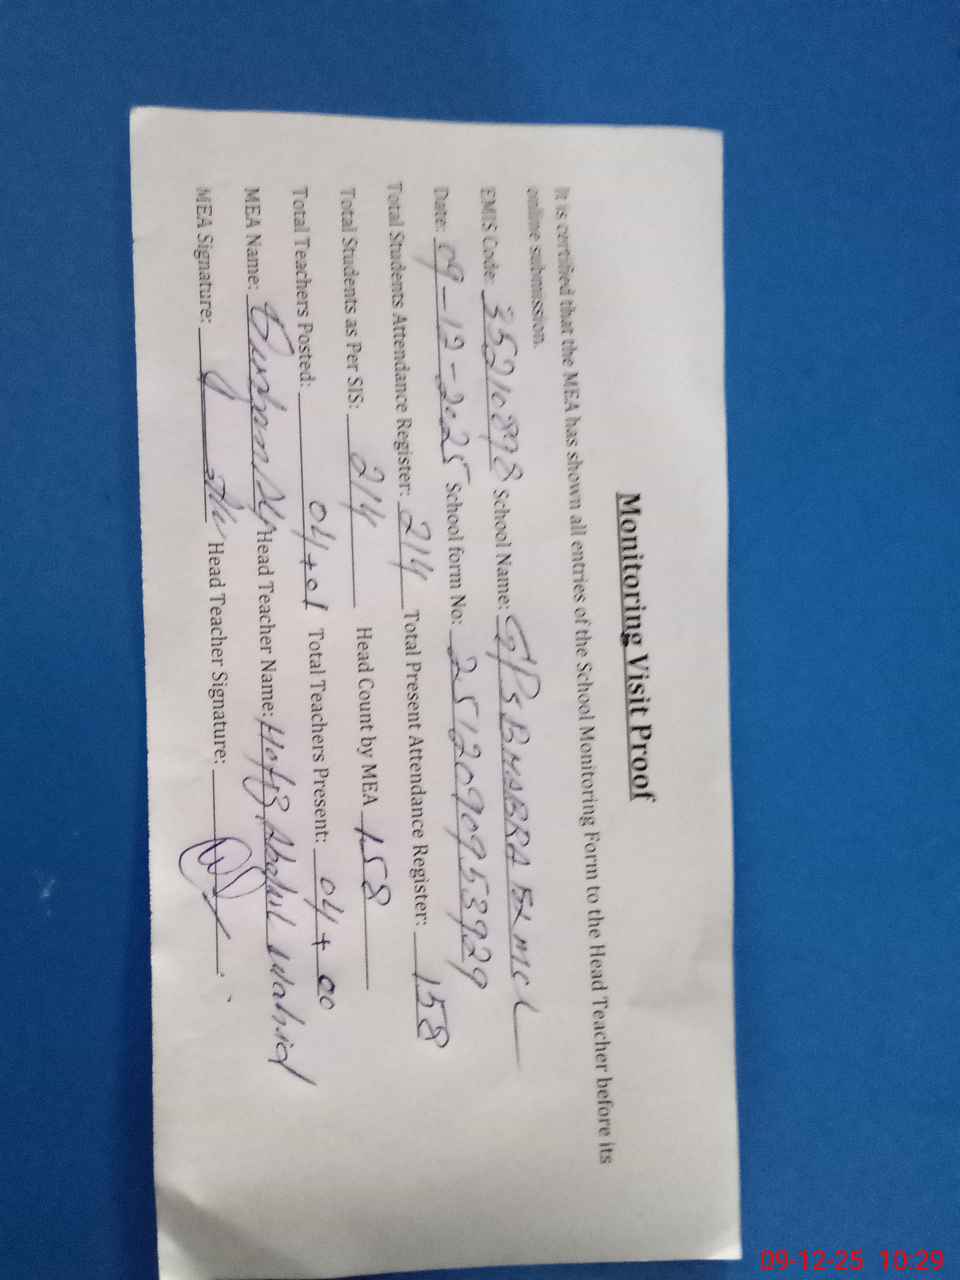 Monitoring Visit Proof
It is certified that the MEA has shown all entries of the School Monitoring Form to the Head Teacher before its
online submission.
EMIS Code: 35210898 School Name: GPS BHABRA Ex MCL
Date: 09-12-2025 School form No: 2512090953929
Total Students Attendance Register: 214 Total Present Attendance Register: 158
Total Students as Per SIS: 214 Head Count by MEA 158
Total Teachers Posted: 04+01 Total Teachers Present: 04+00
MEA Name: Head Teacher Name: Hafiz Abdul Wahid
MEA Signature: Head Teacher Signature:
09-12-25 10:29